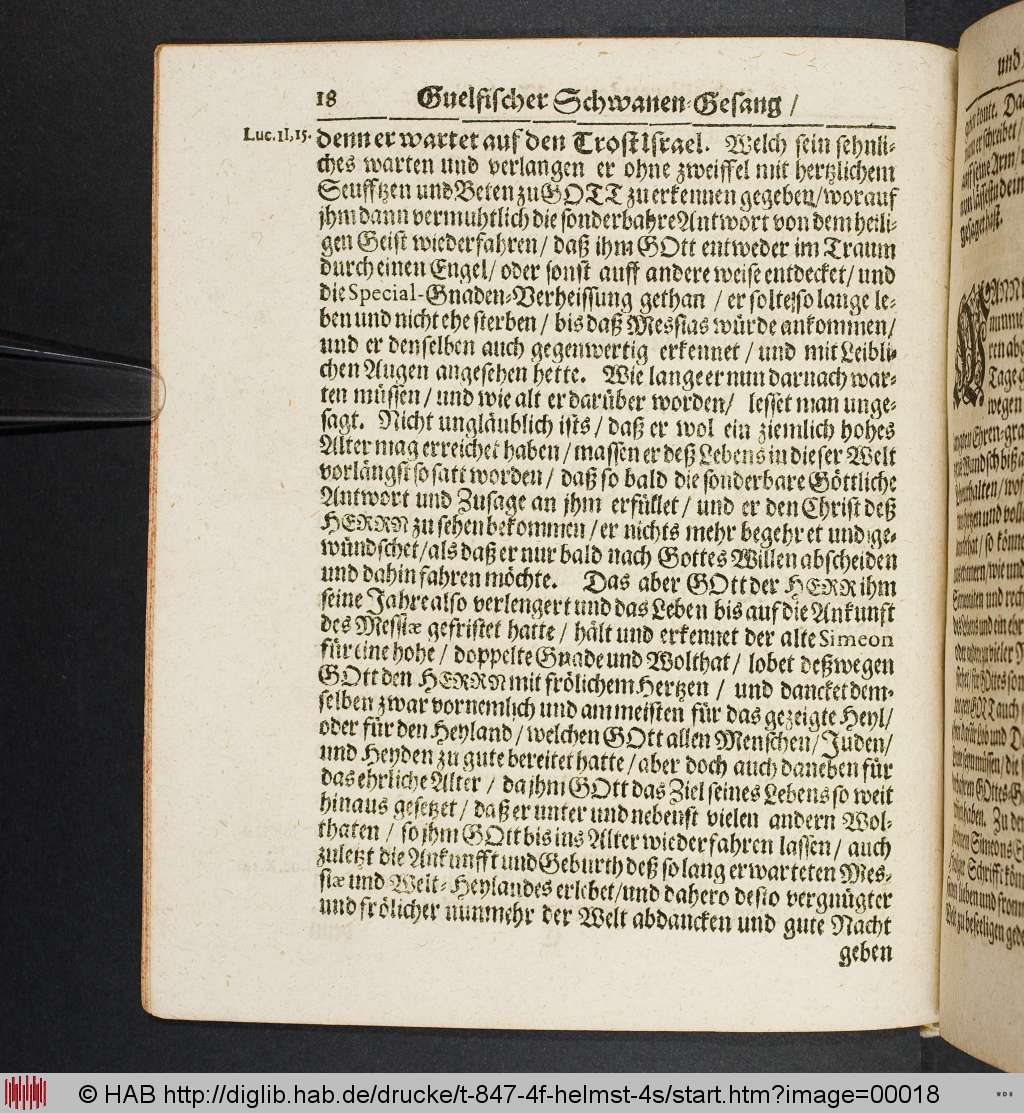 18 Guelfischer Schwanen-Gesang /
Luc. II, 15.
denn er wartet auf den Trost Israel. Welch sein sehnli-
ches warten und verlangen er ohne zweiffel mit hertzlichem
Seufftzen und Beten zu GOTT zu erkennen gegeben / worauf
jhm dann vermuhtlich die sonderbahre Antwort von dem heili-
gen Geist wiederfahren / daß ihm GOtt entweder im Traum
durch einen Engel / oder sonst auff andere weise entdecket / und
die Special-Gnaden-Verheissung gethan / er solte so lange le-
ben und nicht ehe sterben / bis daß Messias würde ankommen /
und er denselben auch gegenwertig erkennet / und mit Leibli-
chen Augen angesehen hette. Wie lange er nun darnach war-
ten müssen / und wie alt er darüber worden / lesset man unge-
sagt. Nicht ungläublich ists / daß er wol ein ziemlich hohes
Alter mag erreichet haben / massen er deß Lebens in dieser Welt
vorlängst so satt worden / daß so bald die sonderbare Göttliche
Antwort und Zusage an jhm erfüllet / und er den Christ deß
HERRN zu sehen bekommen / er nichts mehr begehret und ge-
wündschet / als daß er nur bald nach Gottes Willen abscheiden
und dahin fahren möchte. Das aber GOtt der HERR ihm
seine Jahre also verlengert und das Leben bis auf die Ankunft
des Messiæ gefristet hatte / hält und erkennet der alte Simeon
für eine hohe / doppelte Gnade und Wolthat / lobet deßwegen
GOtt den HERRN mit frölichem Hertzen / und dancket dem-
selben zwar vornemlich und am meisten für das gezeigte Heyl /
oder für den Heyland / welchen GOtt allen Menschen / Juden /
und Heyden zu gute bereitet hatte / aber doch auch daneben für
das ehrliche Alter / da jhm GOtt das Ziel seines Lebens so weit
hinaus gesetzet / daß er unter und nebenst vielen andern Wol-
thaten / so jhm GOtt bis ins Alter wiederfahren lassen / auch
zuletzt die Ankunfft und Geburth deß so lang erwarteten Mes-
siæ und Welt-Heylandes erlebet / und dahero desto vergnügter
und frölicher nunmehr der Welt abdancken und gute Nacht
geben
© HAB http://diglib.hab.de/drucke/t-847-4f-helmst-4s/start.htm?image=00018